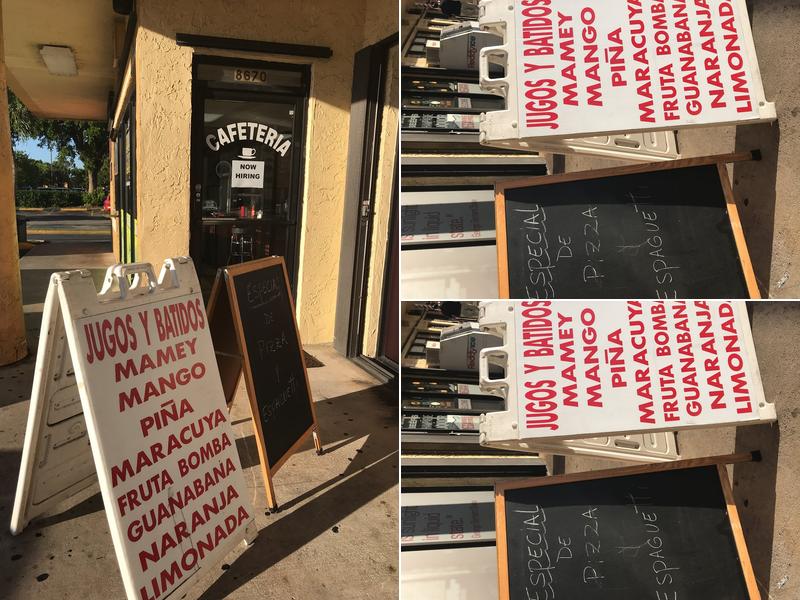 8670
CAFETERIA
NOW
HIRING
JUGOS Y BATIDOS
MAMEY
MANGO
PIÑA
MARACUYA
FRUTA BOMBA
GUANABANA
NARANJA
LIMONADA
ESPECIAL
DE
PIZZA
Y
ESPAGUETTI
JUGOS Y BATIDOS
MAMEY
MANGO
PIÑA
MARACUYA
FRUTA BOMBA
GUANABANA
NARANJA
LIMONADA
ESPECIAL
DE
PIZZA
Y
ESPAGUETTI
JUGOS Y BATIDOS
MAMEY
MANGO
PIÑA
MARACUYA
FRUTA BOMBA
GUANABANA
NARANJA
LIMONADA
ESPECIAL
DE
PIZZA
Y
ESPAGUETTI